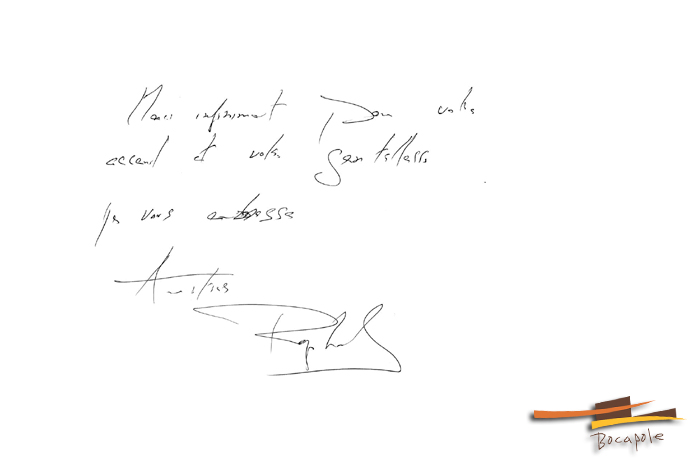 Merci infiniment pour votre
accueil et votre gentillesse
Je vous embrasse
Amitiés
Raphaël
Bocapole